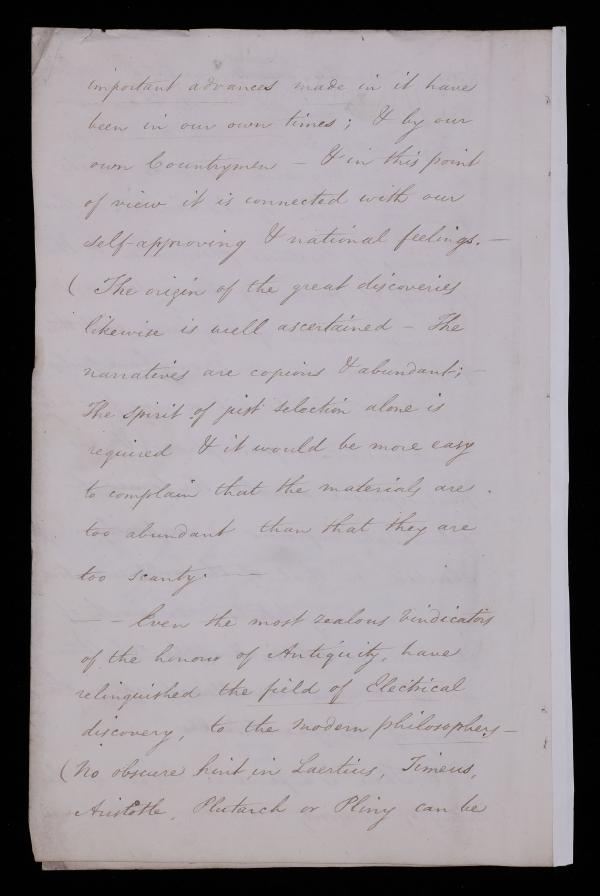 important advances made in it have
been in our own times; & by our
own Countrymen – & in this point
of view it is connected with our
self-approving & national feelings. –
( The origin of the great discoveries
likewise is well ascertained – The
narratives are copious & abundant; –
The spirit of just selection alone is
required & it would be more easy
to complain that the materials are
too abundant than that they are
too scanty. —
— – Even the most zealous vindicators
of the honour of Antiquity, have
relinquished the field of Electrical
discovery, to the modern philosophers –
(No obscure hint in Laertius, Timeus,
Aristotle, Plutarch or Pliny can be